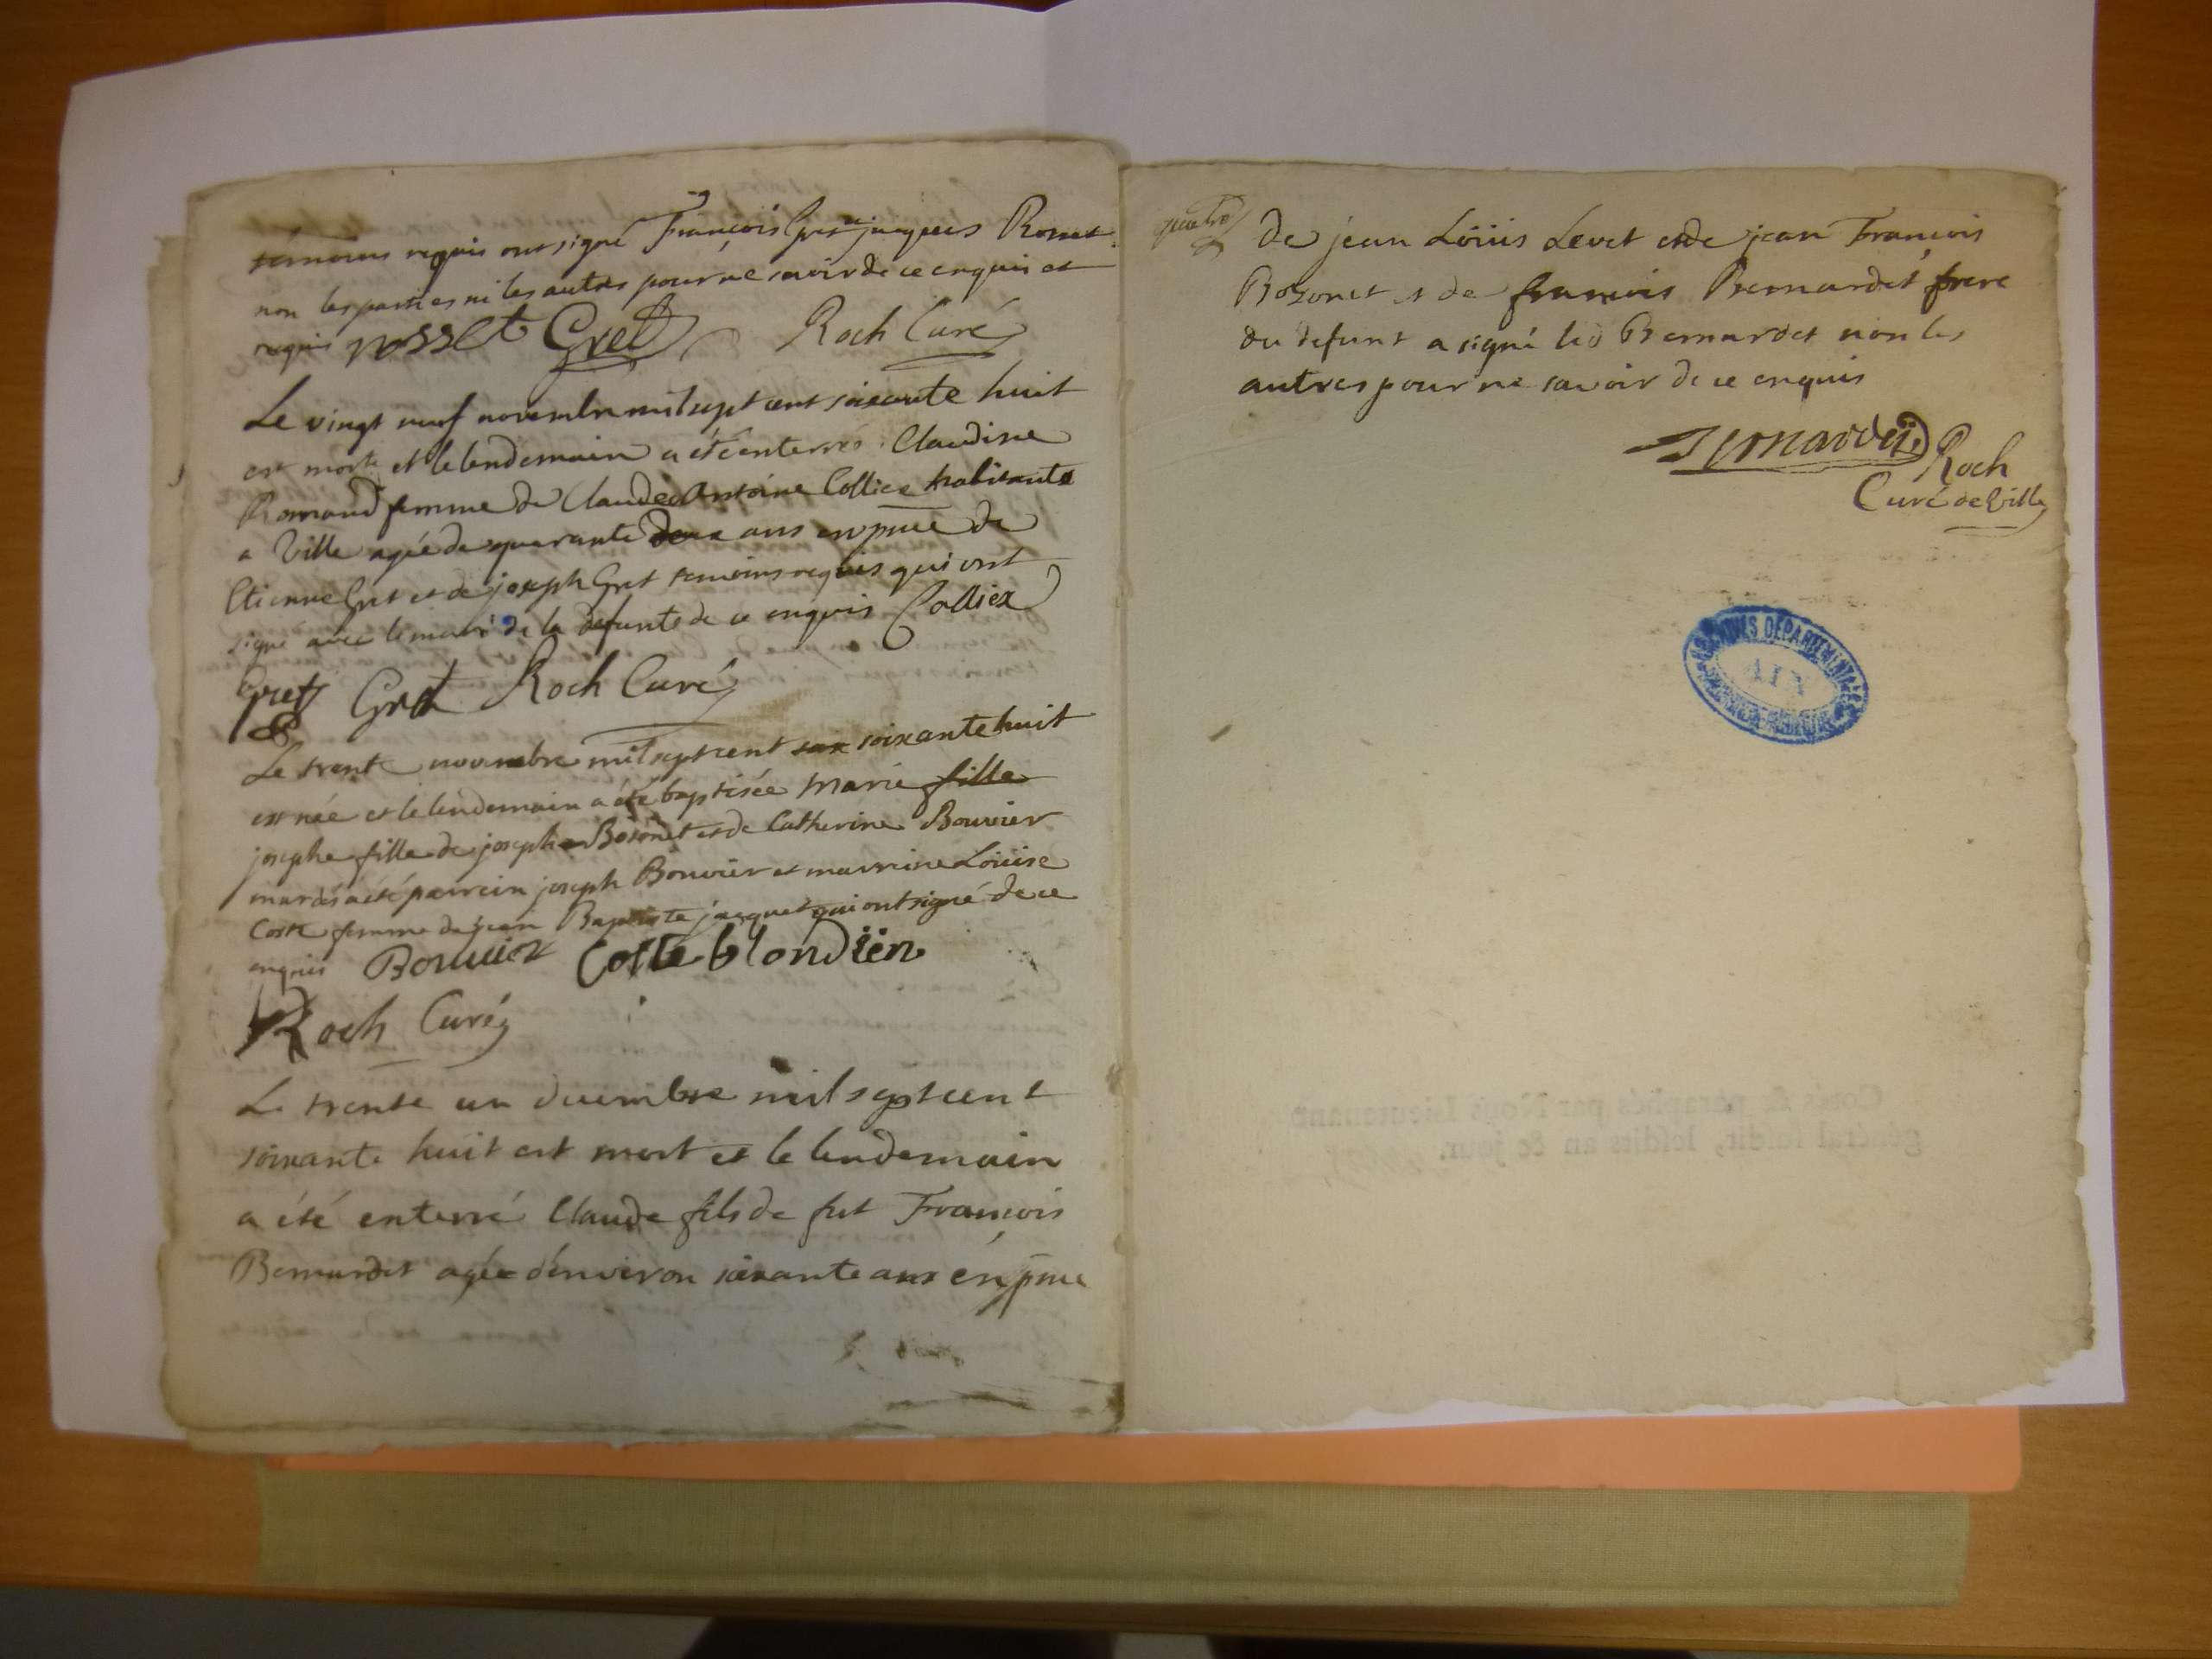 témoins requis ont signé François Gret jacques Rosset
non les parties ni les autres pour ne savoir de ce enquis et
requis rosset Gret Roch Curé
Le vingt neuf novembre mil sept cent soixante huit
est morte et le lendemain a été enterrée Claudine
Romand femme de Claude Antoine Colliex habitante
a Ville agée de quarante deux ans en pnce de
Etienne Gret et de joseph Gret temoins requis qui ont
signé avec le mari de la defunte de ce enquis Colliex
Gret Gret Roch Curé
Le trente novembre mil sept cent soixante huit
est née et le lendemain a été baptisée Marie fille
josephe fille de joseph Bosonet et de Catherine Bouvier
mariés a été parrein joseph Bouvier et marrine Loüise
Coste femme de jean Baptiste jacquet qui ont signé de ce
enquis Bouuier Coste blondiën
Roch Curé
Le trente un decembre mil sept cent
soixante huit est mort et le lendemain
a été enterré Claude fils de fut François
Bernardet agée dénviron soixante ans en pnce
quatre
de jean Loüis Levet et de jean François
Bozonet et de francois Bernardet frere
du defunt a signé led Bernardet non les
autres pour ne savoir de ce enquis
Bernardet Roch
Curé de Ville
ARCHIVES DEPARTEMENTALES
AIN